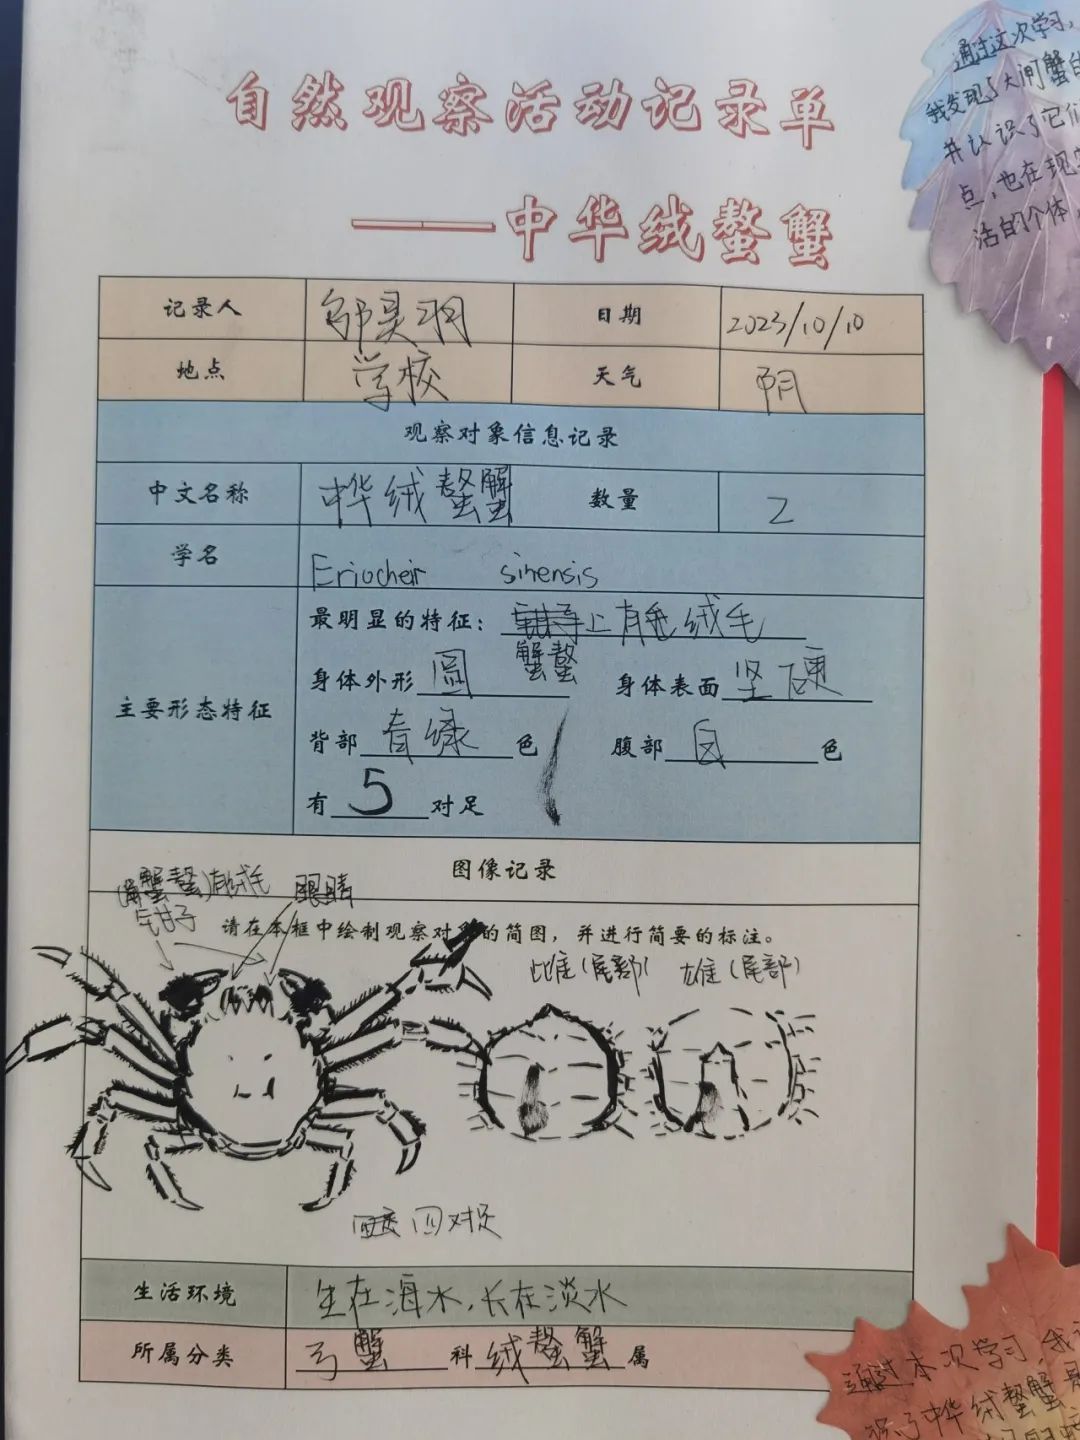 自然观察活动记录单
——中华绒螯蟹
通过这次学习,
我发现了大闸蟹的
并认识了它们
点,也在现实
活的个体
记录人 邬昊羽 日期 2023/10/10
地点 学校 天气 阴
观察对象信息记录
中文名称 中华绒螯蟹 数量 2
学名 Eriocheir sinensis
主要形态特征
最明显的特征: 上有绒毛
蟹螯
身体外形 圆 身体表面 坚硬
背部 青绿 色 腹部 白 色
有 5 对足
图像记录
(蟹螯)有绒毛 眼睛
钳子
请在本框中绘制观察对象的简图,并进行简要的标注。
雌(尾部) 雄(尾部)
四对足
生活环境 生在海水,长在淡水
所属分类 弓蟹 科 绒螯蟹 属
通过本次学习,我
识了中华绒螯蟹是